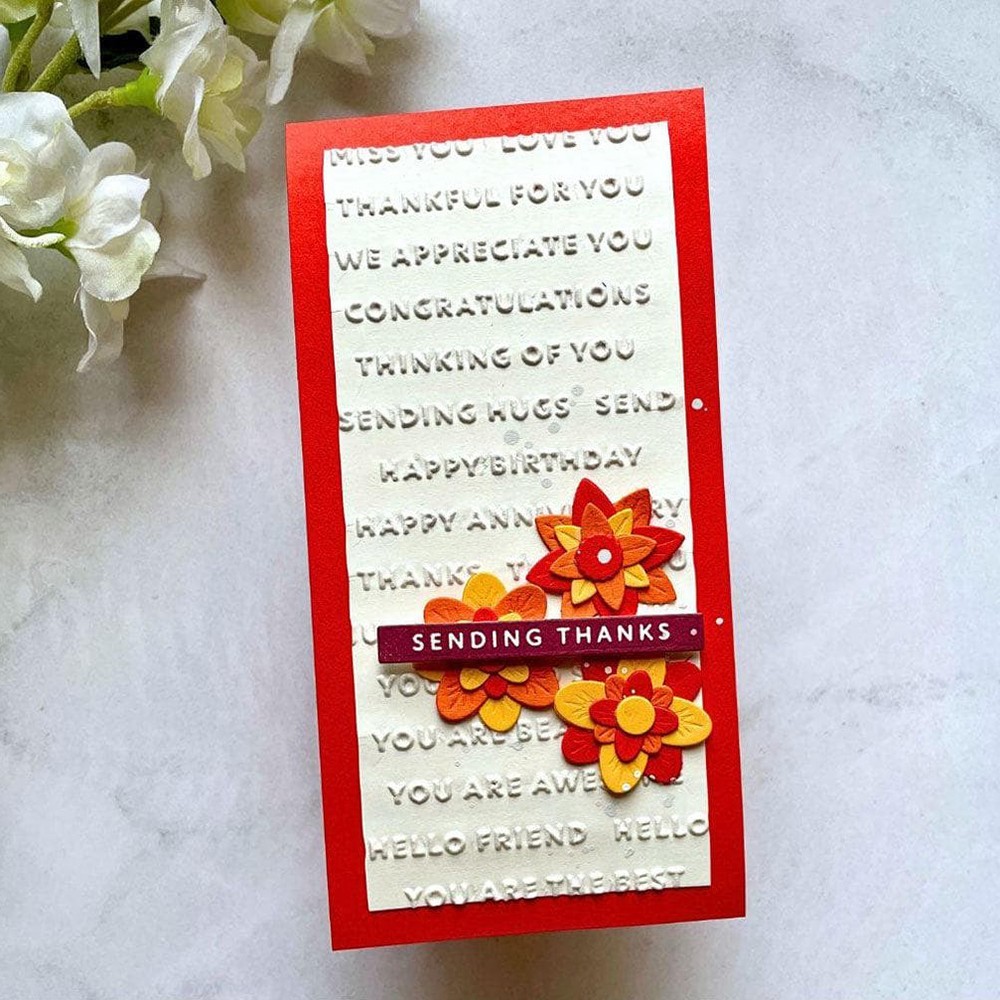 MISS YOU LOVE YOU
THANKFUL FOR YOU
WE APPRECIATE YOU
CONGRATULATIONS
THINKING OF YOU
SENDING HUGS SEND
HAPPY BIRTHDAY
HAPPY
THANKS
SENDING THANKS
YOU
YOU ARE
YOU ARE
HELLO FRIEND HELLO
YOU ARE THE BEST